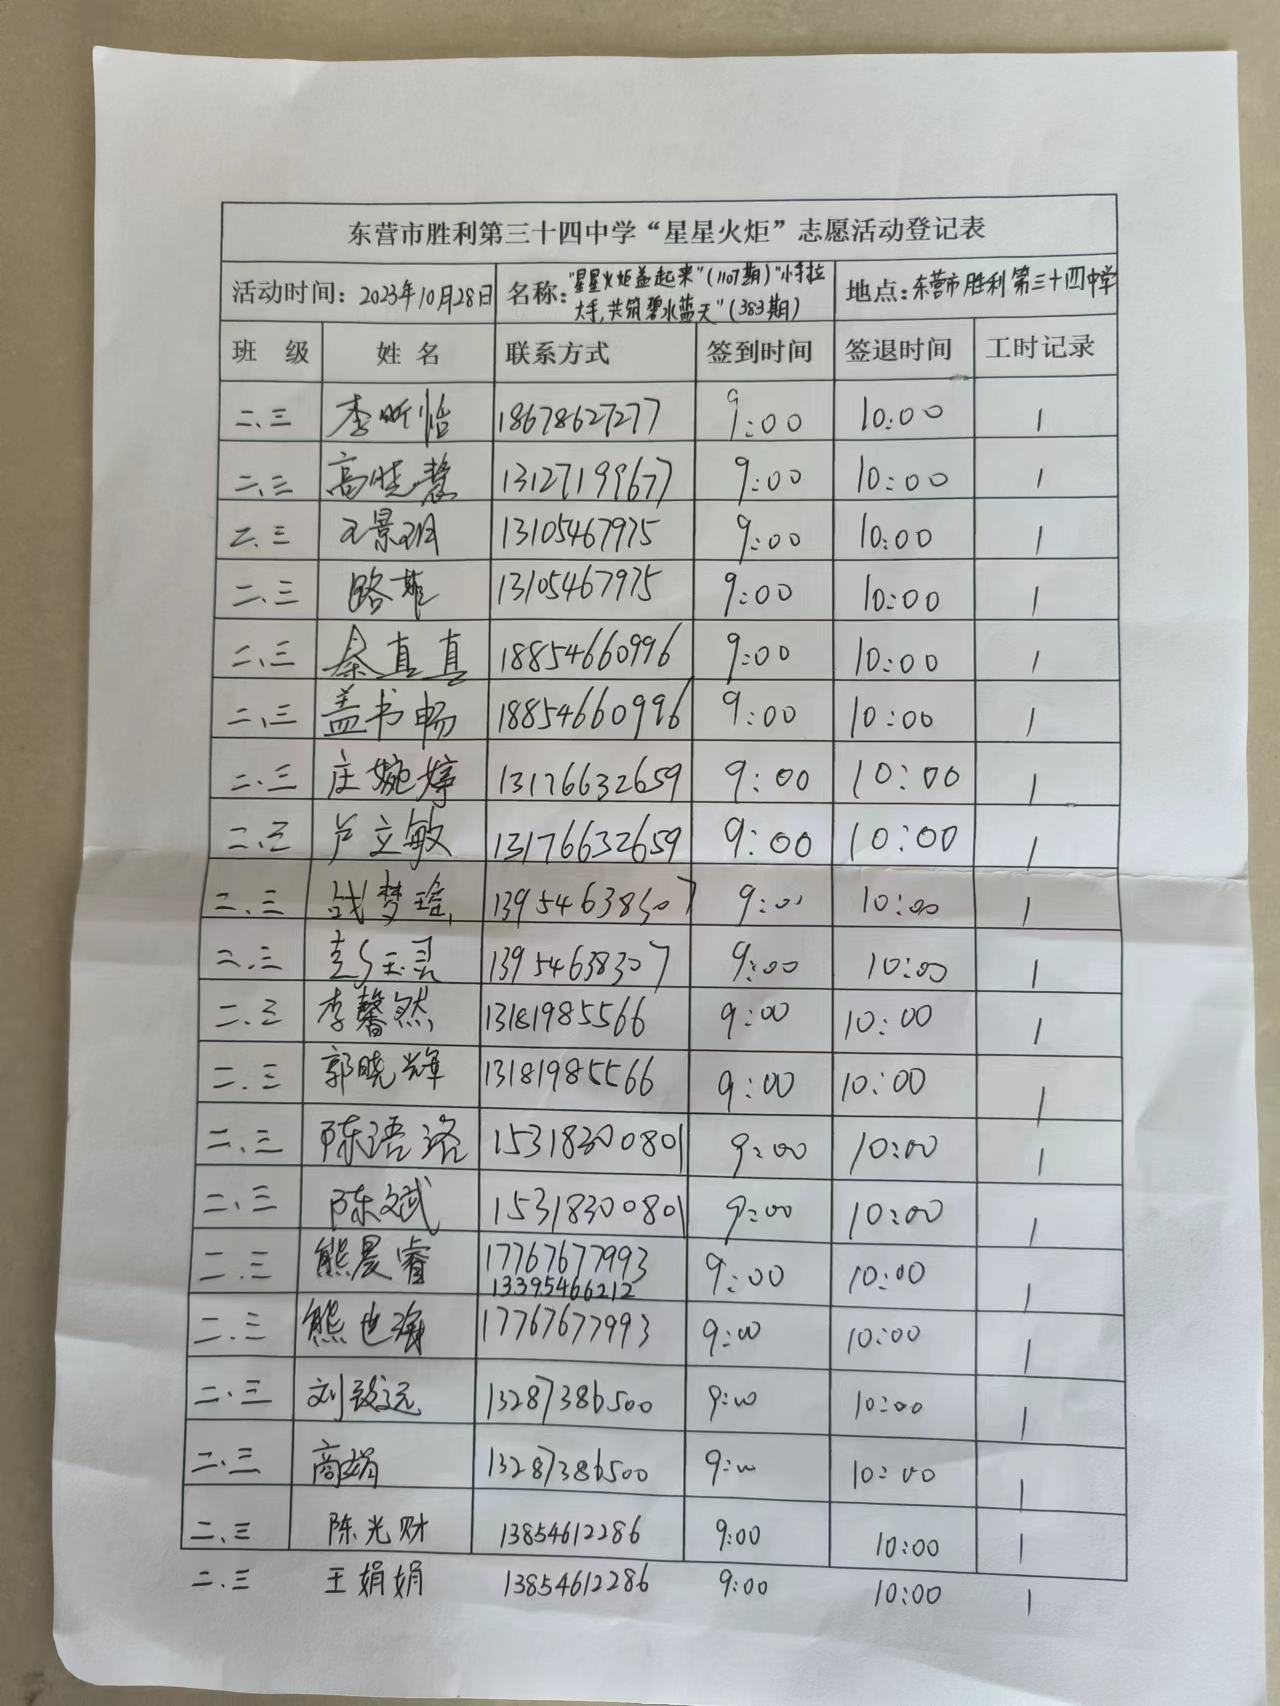 东营市胜利第三十四中学“星星火炬”志愿活动登记表
活动时间：2023年10月28日 名称：“星星火炬益起来”(1107期)“小手拉 地点：东营市胜利第三十四中学
大手，共筑碧水蓝天”(383期)
班 级 姓 名 联系方式 签到时间 签退时间 工时记录
二.三 李昕怡 18678627277 9:00 10:00 1
二.三 高晓慧 13127199677 9:00 10:00 1
二.三 王景玥 13105467975 9:00 10:00 1
二.三 路菲 13105467975 9:00 10:00 1
二.三 秦真真 18854660996 9:00 10:00 1
二.三 盖书畅 18854660996 9:00 10:00 1
二.三 庄婉婷 13176632659 9:00 10:00 1
二.三 芦立敏 13176632659 9:00 10:00 1
二.三 战梦瑶 13954638307 9:00 10:00 1
二.三 彭玉灵 13954638307 9:00 10:00 1
二.三 李馨然 13181985566 9:00 10:00 1
二.三 郭晓辉 13181985566 9:00 10:00 1
二.三 陈语洛 15318300801 9:00 10:00 1
二.三 陈文斌 15318300801 9:00 10:00 1
二.三 熊晨睿 17767677993 9:00 10:00 1
13395466212
二.三 熊也海 17767677993 9:00 10:00 1
二.三 刘致远 13287386500 9:00 10:00 1
二.三 商娟 13287386500 9:00 10:00 1
二.三 陈光财 13854612286 9:00 10:00 1
二.三 王娟娟 13854612286 9:00 10:00 1